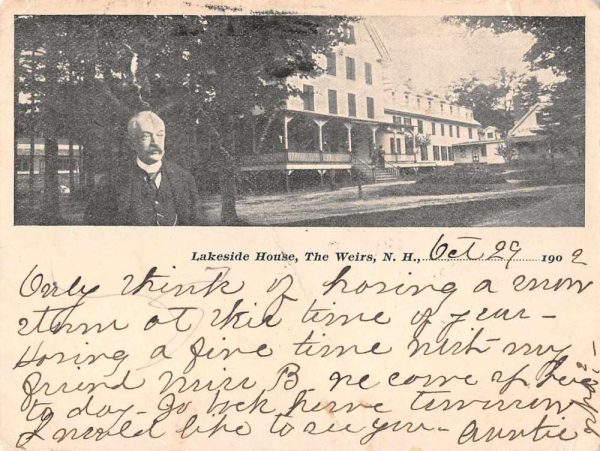 Lakeside House, The Weirs, N. H., Oct 29 1902
Only think of having a snow
storm at this time of year -
Having a fine time with my
friend Miss B. we came up here
to day - Go back home tomorrow
I would like to see you - Auntie